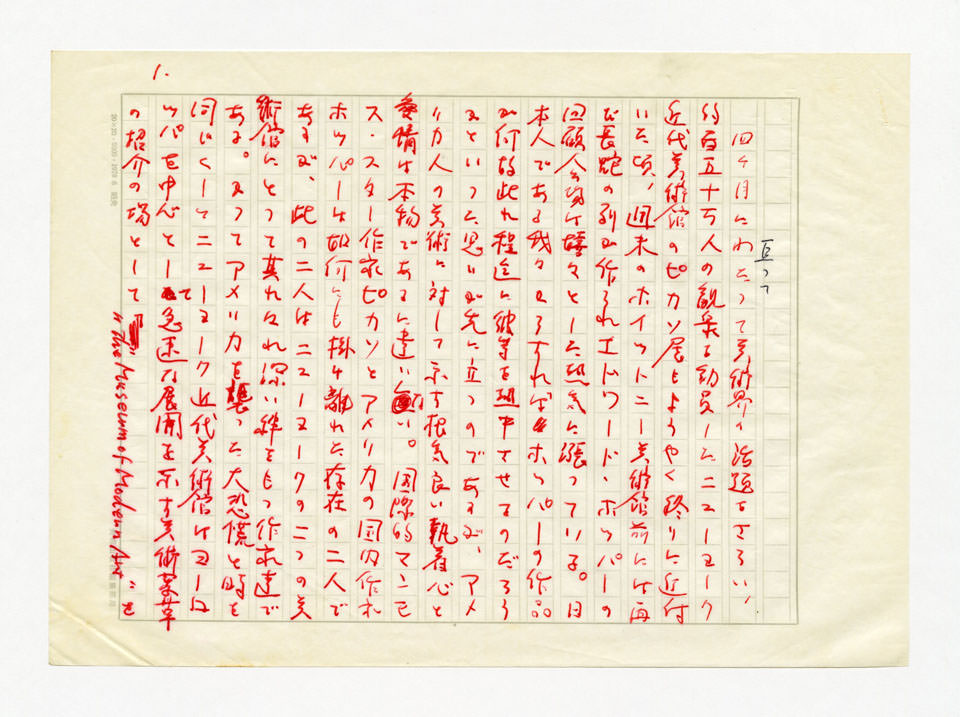 1.
四ケ月にわたって美術界の話題をさらい、
亘って
約百五十万人の観衆を動員したニューヨーク
近代美術館のピカソ展もようやく終りに近付
いた頃、週末のホイットニー美術館前には再
び長蛇の列が作られエドワード・ホッパーの
回顧会場は嬉々とした熱気に漲っている。日
本人である我々からすればホッパーの作品
が何故此れ程迄に彼等を熱中させるのだろう
かといった思いが先に立つのであるが、アメ
リカ人の美術に対して示す根気良い執着心と
愛情は本物であるに違いない。国際的マンモ
ス・スター作家ピカソとアメリカの国内作家
ホッパーは如何にも掛け離れた存在の二人で
あるが、此の二人はニューヨークの二つの美
術館にとって其れぞれ深い絆をもつ作家達で
ある。かつてアメリカを襲った大恐慌と時を
同じくしてニューヨーク近代美術館はヨーロ
ッパを中心として急速な展開を示す美術
の紹介の場として
"The Museum of Modern Art" を
20×20